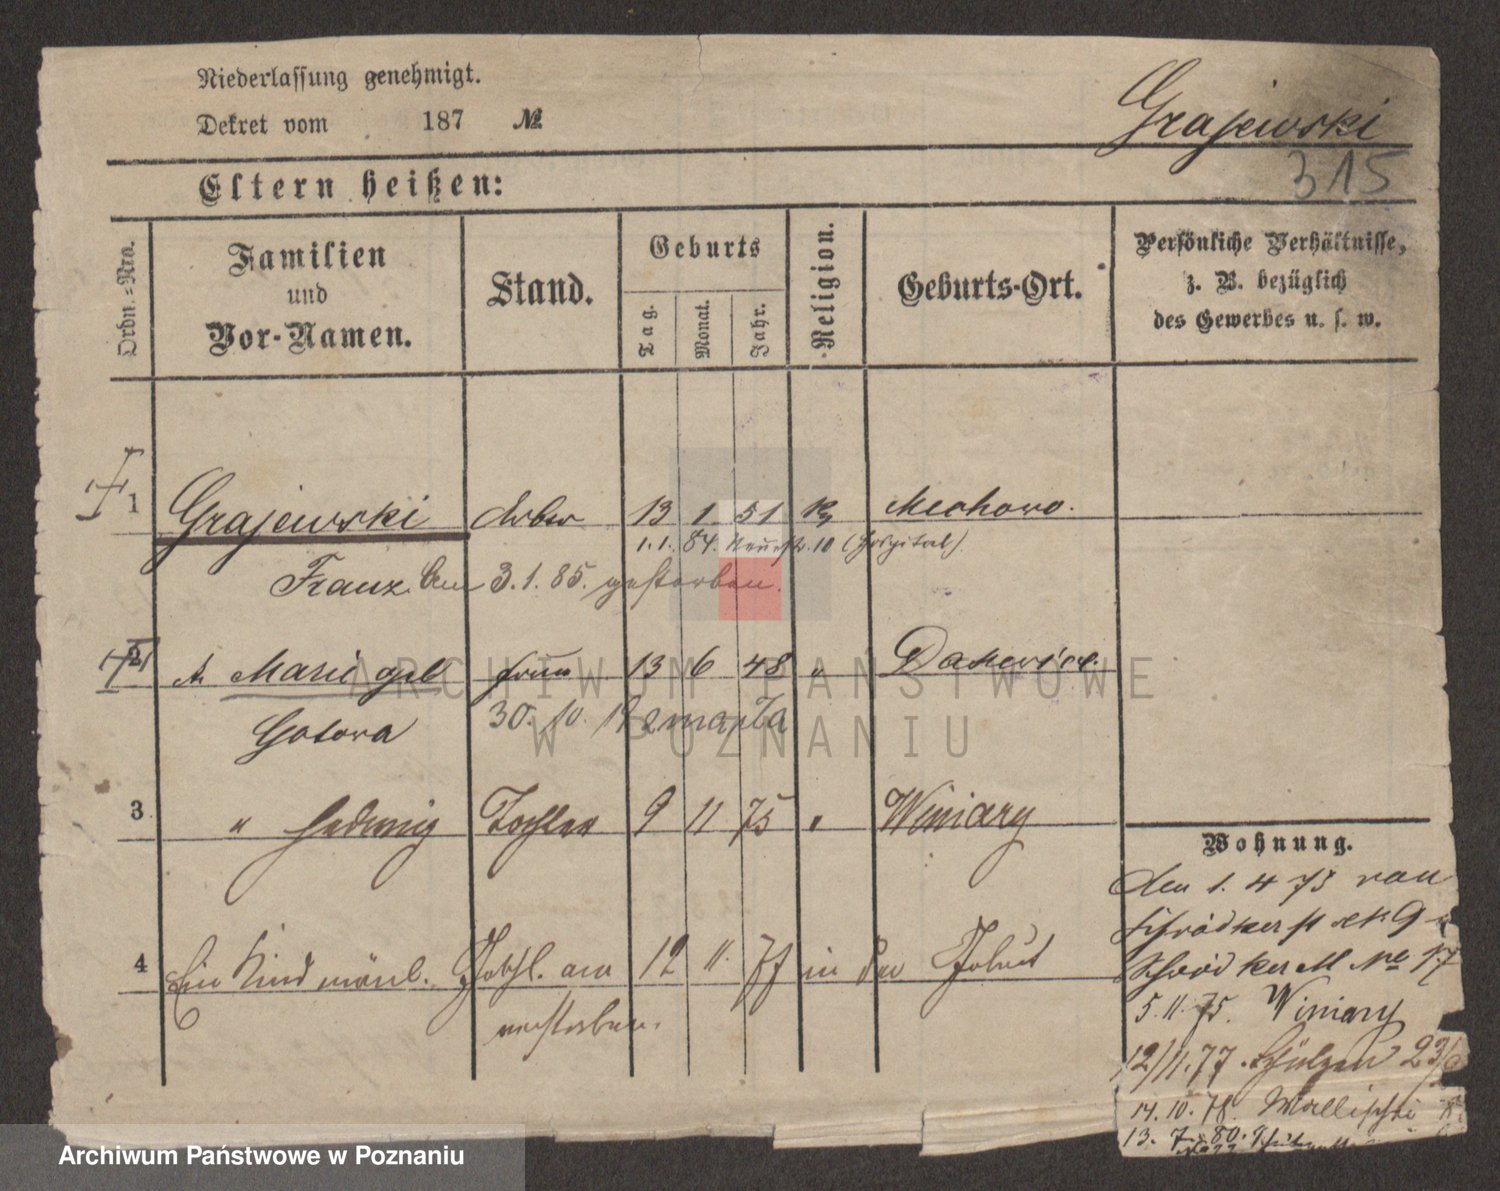 Niederlassung genehmigt.
Dekret vom 187 №
Grajewski
315
Eltern heißen:
Ordn.-Nro.
Familien und Vor-Namen.
Stand.
Geburts
Tag.
Monat.
Jahr.
Religion.
Geburts-Ort.
Persönliche Verhältnisse,
z. B. bezüglich
des Gewerbes u. s. w.
1 Grajewski 13 1 51 Mechowo.
1.1. 84. 10 (Hospital)
Franz 3.1.85. gestorben.
2 Marie geb 13 6 48 "
Gotowa 30. 10. zmarła
3 " Hedwig Tochter 9 11 75 " Winiary
4 Ein Kind männl. am 12 11. 77 in der Geburt
verstorben.
Wohnung.
den 1. 4 75 von
9
№ 17
5. 11. 75. Winiary
12/11. 77.
14. 10. 78. Wallischei
13. 7. 80.
ARCHIWUM PAŃSTWOWE
W POZNANIU
Archiwum Państwowe w Poznaniu